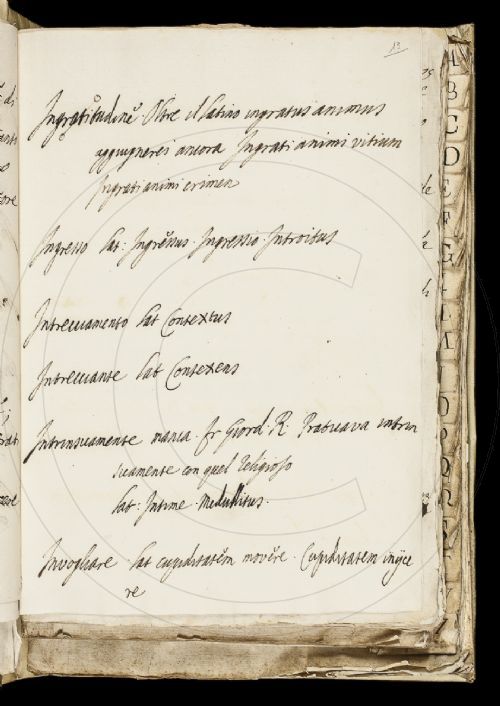 13
Ingratitudine. Oltre il latino ingratus animus
aggiugnerei ancora Ingrati animi vitium
Ingrati animi crimen
Ingresso lat: Ingressus. Ingressio. Introitus
Intrecciamento lat Contextus
Intrecciante lat Contexens
Intrinsicamente manca. fr Giord. R. Praticava intrin
sicamente con quel Religioso
lat: Intime Medullitus.
Invogliare lat cupiditatem movere. Cupiditatem inijce
re
A
B
C
D
E
F
G
L
M
O
P
Q
R
S